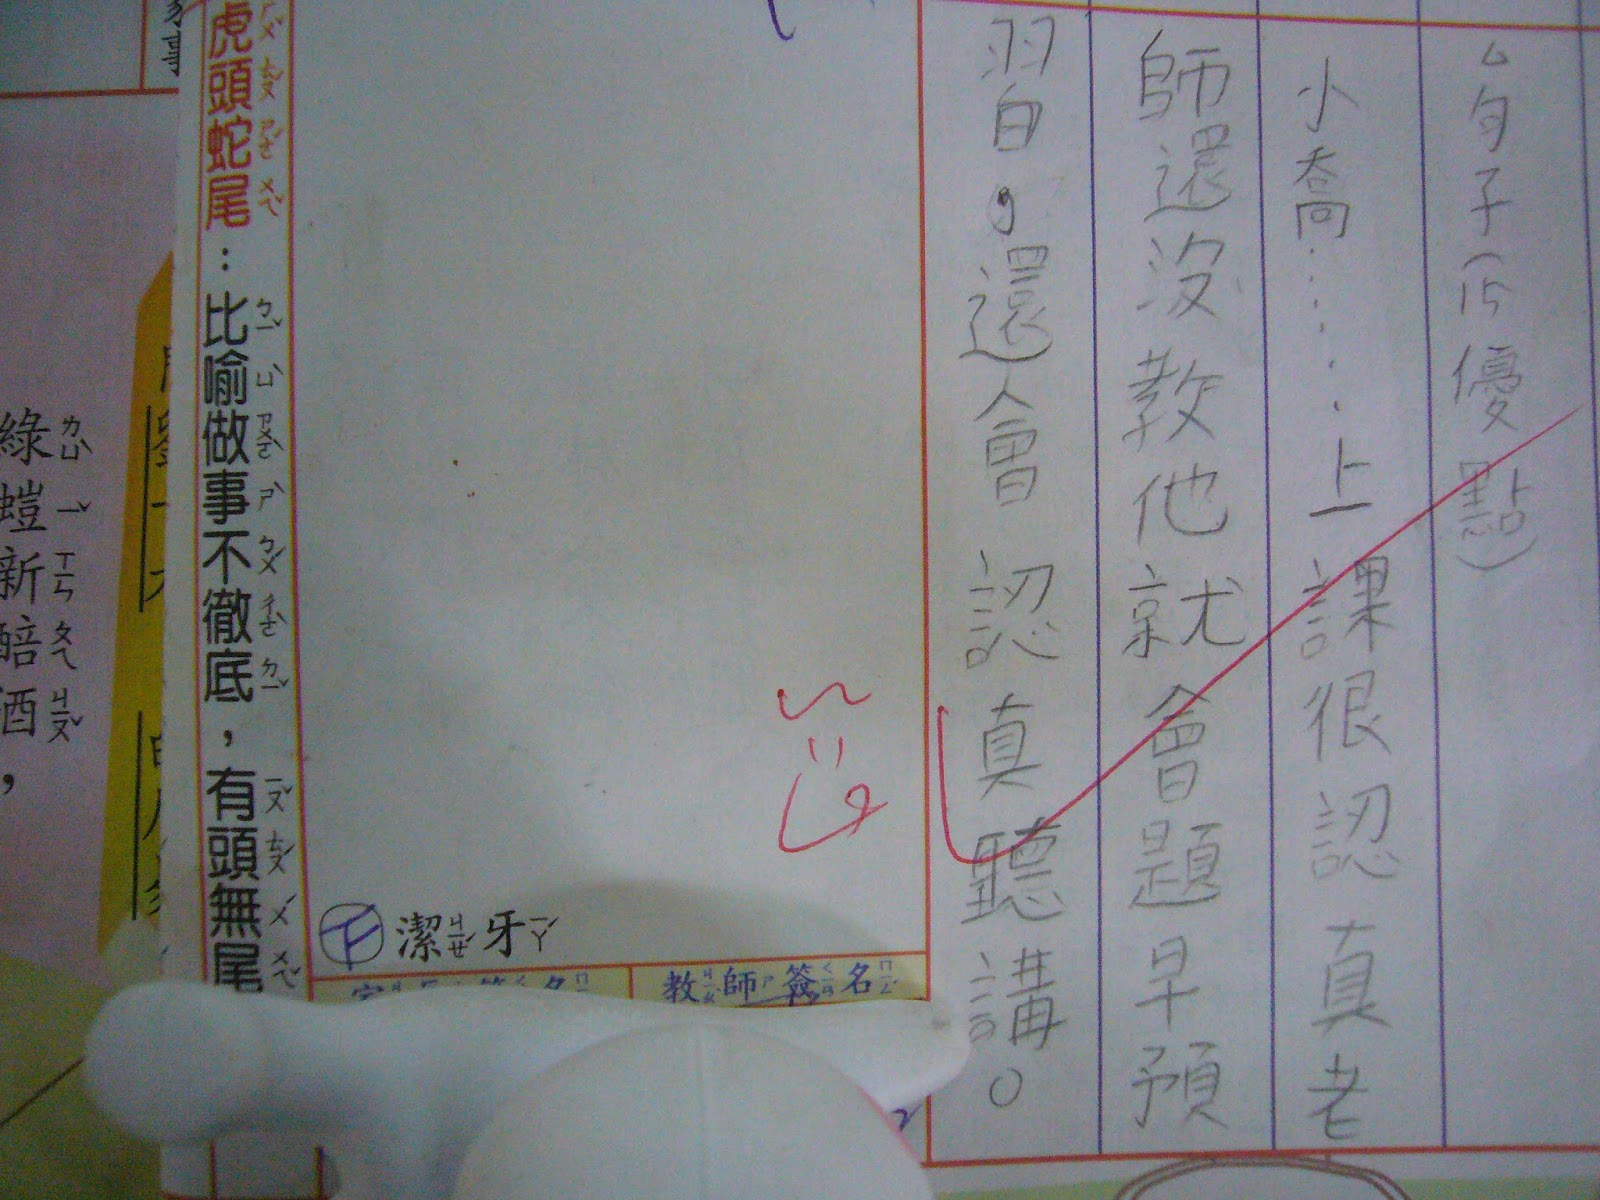 ㄥ句子(15優點)
小喬......上課很認真老
師還沒教他就會題早預
習自,還會認真聽講。
潔牙
教師簽名
虎頭蛇尾:比喻做事不徹底,有頭無尾
綠螘新醅酒,